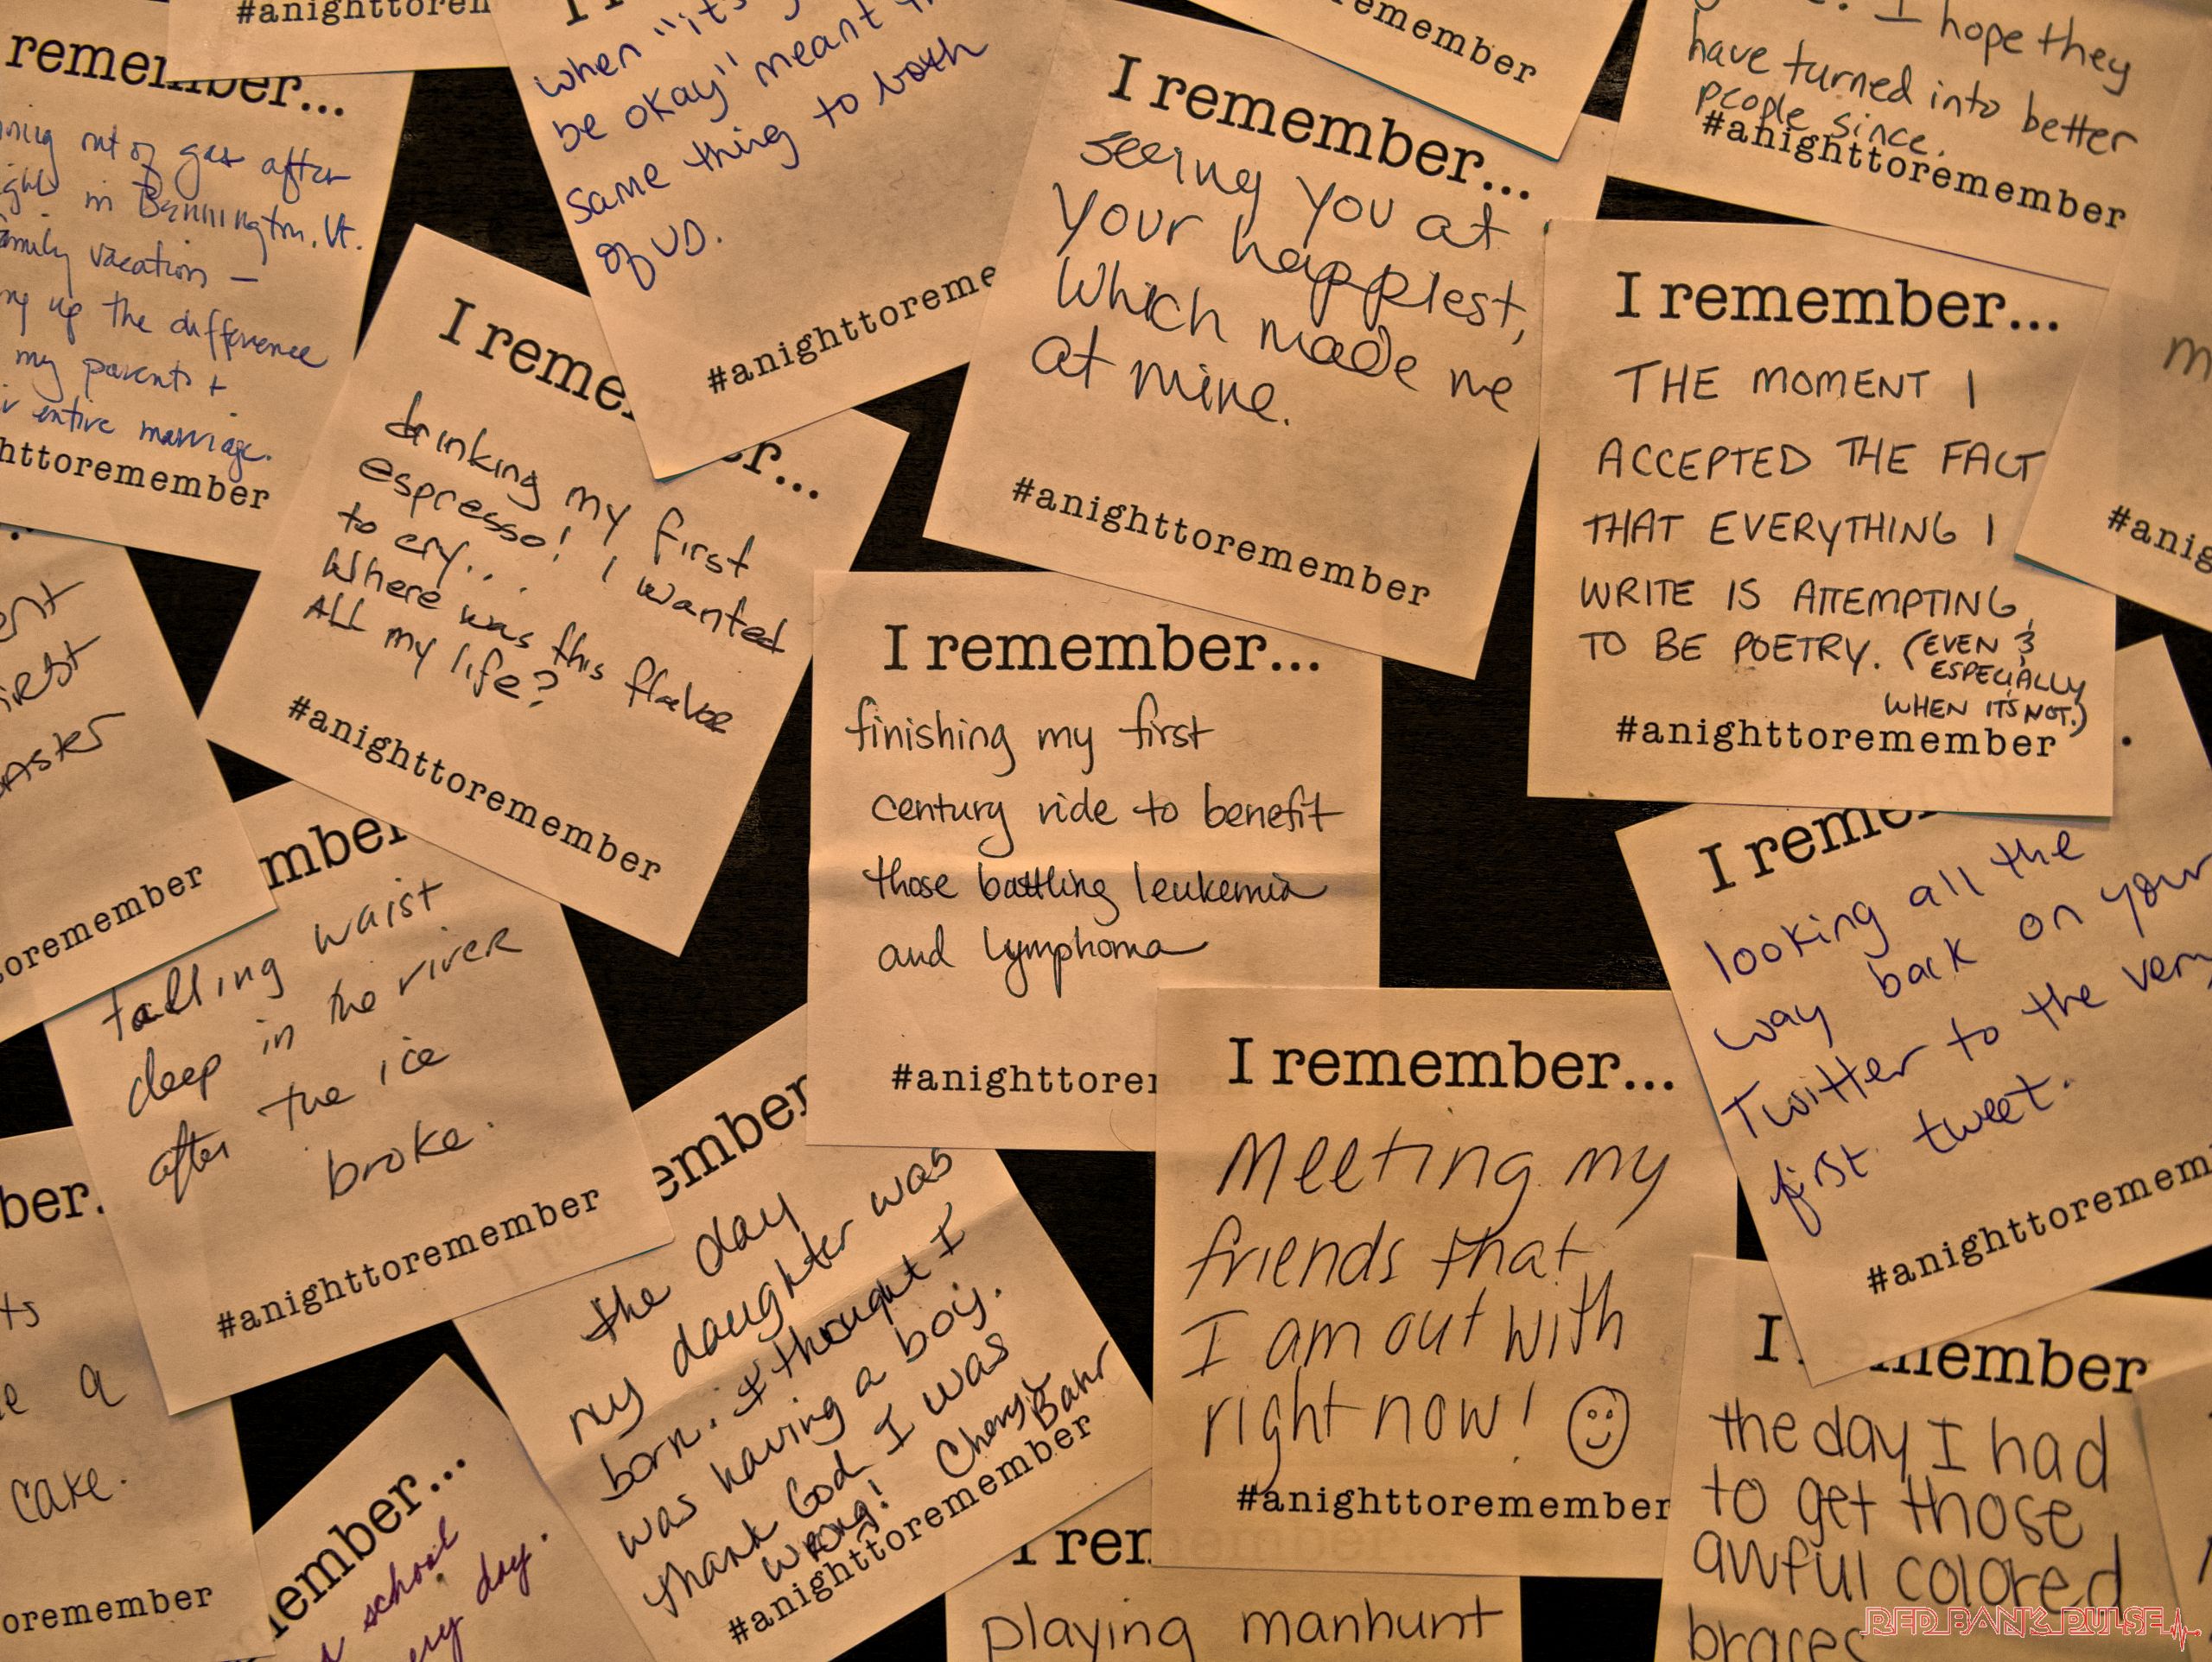 #anighttoremem
remember...
ning out of gas after
in Bennington, Vt.
family vacation –
up the difference
my parents +
entire marriage.
httoremember
when "it's
be okay" meant
same thing to both
of us.
#anighttoreme
I remember...
seeing you at
your happiest,
which made me
at mine.
#anighttoremember
emember
I hope they
have turned into better
people since.
#anighttoremember
I reme
er...
drinking my first
espresso! I wanted
to cry...
Where was this flavor
All my life?
#anighttoremember
I remember...
THE MOMENT I
ACCEPTED THE FACT
THAT EVERYTHING I
WRITE IS ATTEMPTING
TO BE POETRY. (EVEN &
ESPECIALLY
WHEN IT'S NOT.)
#anighttoremember
#anig
oremember
I remember...
finishing my first
century ride to benefit
those battling leukemia
and lymphoma
#anighttorem
mber
falling waist
deep in the river
after the ice
broke.
#anighttoremember
I reme
looking all the
way back on your
Twitter to the very
first tweet.
#anighttoremem
ember
the day
my daughter was
born. I thought I
was having a boy.
Thank God I was
wrong!
Cheryl
Bahr
#anighttoremember
I remember...
Meeting my
friends that
I am out with
right now!
#anighttoremember
ber.
a
cake.
oremember
ember...
school
day.
I rem
playing manhunt
I member
the day I had
to get those
awful colored
braces
RED BANK PULSE